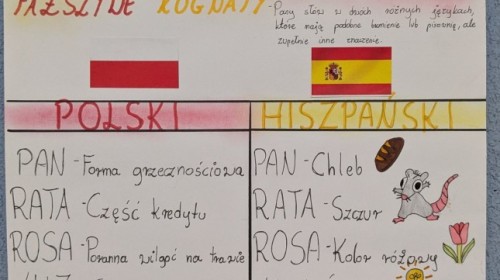 FAŁSZYWE KOGNATY
- Pary słów w dwóch różnych językach,
które mają podobne brzmienie lub pisownię, ale
zupełnie inne znaczenie.
POLSKI
HISZPAŃSKI
PAN - Forma grzecznościowa
RATA - Część kredytu
ROSA - Poranna wilgoć na trawie
PAN - Chleb
RATA - Szczur
ROSA - Kolor różowy